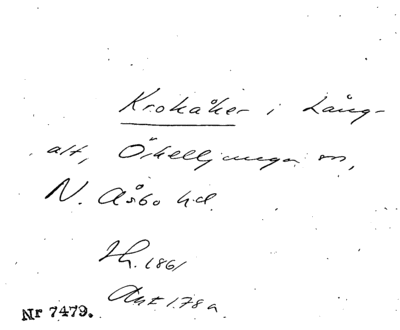 Krokåker i Lång-
alt, Örkelljunga sn,
N. Åsbo hd.
Hh. 1861
Ant 178 a
Nr 7479.